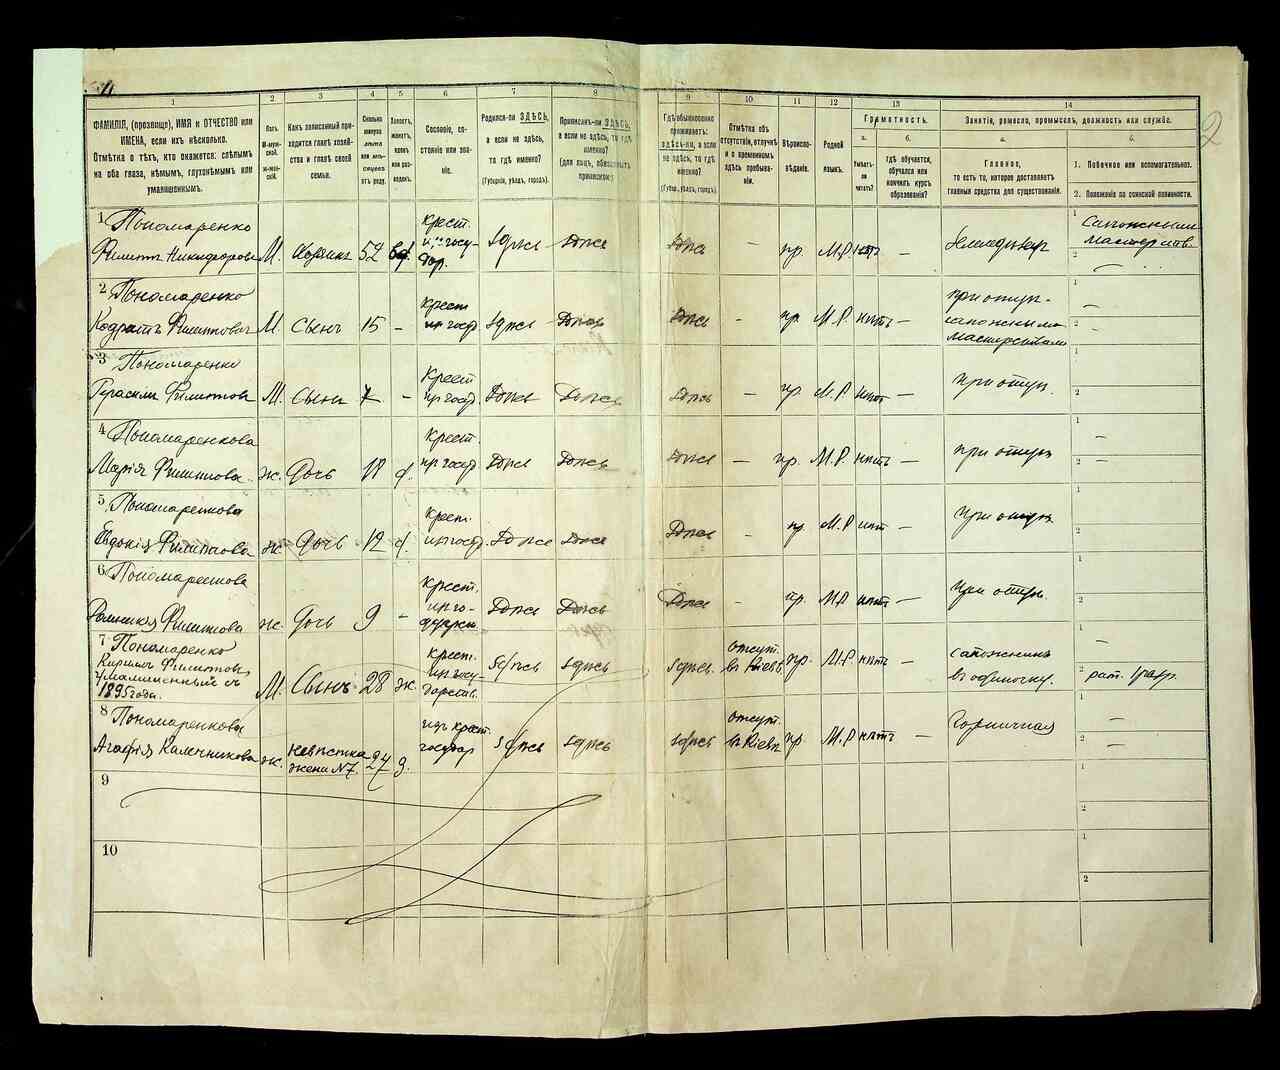 1 2 3 4 5 6 7 8 9 10 11 12 13 14
ФАМИЛІЯ, (прозвище), ИМЯ и ОТЧЕСТВО или
ИМЕНА, если ихъ нѣсколько.
Отмѣтка о тѣхъ, кто окажется: слѣпымъ
на оба глаза, нѣмымъ, глухонѣмымъ или
умалишеннымъ.
Полъ.
М-мужской.
ж-женскій.
Какъ записанный приходится главѣ хозяйства и главѣ своей семьи.
Сколько минуло лѣтъ или мѣсяцевъ отъ роду.
Холостъ, женатъ, вдовъ или разведенъ.
Сословіе, состояніе или званіе.
Родился-ли ЗДѢСЬ,
а если не здѣсь,
то гдѣ именно?
(Губернія, уѣздъ, городъ).
Приписанъ-ли ЗДѢСЬ,
а если не здѣсь, то гдѣ
именно?
(для лицъ, обязанныхъ
припискою).
Гдѣ обыкновенно
проживаетъ:
здѣсь-ли, а если
не здѣсь, то гдѣ
именно?
(Губер., уѣздъ, городъ).
Отмѣтка объ
отсутствіи, отлучкѣ
и о временномъ
здѣсь пребываніи.
Вѣроисповѣданіе.
Родной
языкъ.
Грамотность.
а. б.
Умѣетъ-ли читать?
гдѣ обучается,
обучался или
кончилъ курсъ
образованія?
Занятіе, ремесло, промыселъ, должность или служба.
а. б.
Главное,
то есть то, которое доставляетъ
главныя средства для существованія.
1. Побочное или вспомогательное.
2. Положеніе по воинской повинности.
2
1 Пономаренко
Филиппъ Никифоровъ М. Хозяинъ 52 вд. Крест. изъ госу- дар. здѣсь Тоже Тоже - пр. М.Р. нѣтъ - Земледѣлецъ
1 Сапожнымъ
мастерств.
2 -
2 Пономаренко
Кодратъ Филипповъ М. Сынъ 15 - Крест. из госуд. здѣсь Тоже Тоже - пр М.Р. нѣтъ - при отцѣ - сапожнымъ мастерствомъ
1 -
2 -
3 Пономаренко
Герасимъ Филипповъ М. Сынъ 7 - Крест. из госуд. Тоже Тоже Тоже - пр. М.Р. нѣтъ - при отцѣ
1
2
4 Пономаренкова
Марія Филиппова ж. Дочь 18 д. Крест. из госуд. Тоже Тоже Тоже - пр. М.Р. нѣтъ - при отцѣ
1 -
2 -
5 Пономаренкова
Евдокія Филиппова ж. Дочь 12 д. Крест. из госуд. Тоже Тоже Тоже - пр М.Р нѣт - при отцѣ
1
2
6 Пономаренкова
Филиппова ж. Дочь 9 - Крест. из го- Тоже Тоже Тоже - пр. М.Р нѣтъ - при отцѣ
1
2
7 Пономаренко
Кирилъ Филипповъ
умалишенный съ
1895 года. М. Сынъ 28 ж. Крест. из госу- дарств. здѣсь здѣсь здѣсь отсут. въ Кіевѣ пр. М.Р. нѣтъ - сапожникъ въ одиночку.
1 -
2 рат. 1 разр.
8 Пономаренкова
Агафія Калечникова ж. невѣстка жена №7 27 з. изъ крест. государ здѣсь здѣсь здѣсь отсут. въ Кіевѣ пр. М.Р нѣтъ - Горничная
1 -
2 -
9
1
2
10
1
2